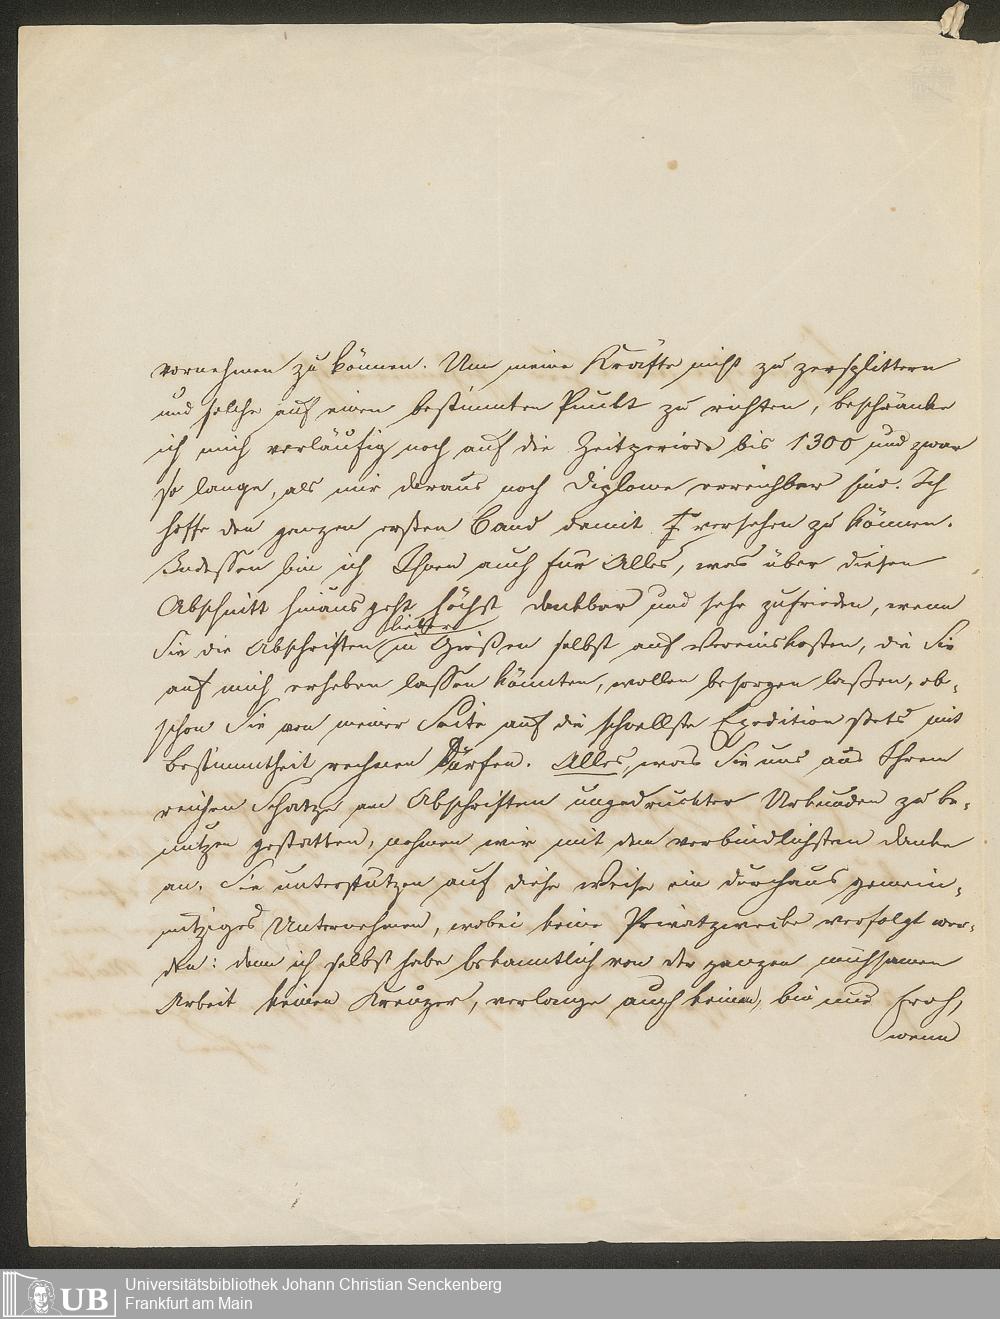 vornehmen zu können. Um meine Kräfte nicht zu zersplittern
und solche auf einen bestimmten Punkt zu richten, beschränke
ich mich vorläufig noch auf die Zeitperiode bis 1300 und zwar
so lange, als mir daraus noch Diplome erreichbar sind. Ich
hoffe den ganzen ersten Band damit versehen zu können.
Indessen bin ich Ihnen auch für Alles, was über diesen
Abschnitt hinaus geht höchst dankbar und sehr zufrieden, wenn
Sie die Abschriften lieber in Gießen selbst auf Vereinskosten, die Sie
auf mich erheben lassen könnten, wollen besorgen laßen, ob-
schon Sie von meiner Seite auf die schnellste Expedition stets mit
Bestimmtheit rechnen dürfen. Alles, was Sie uns aus Ihrem
reichen Schatze an Abschriften ungedruckter Urkunden zu be-
nutzen gestatten, nehmen wir mit dem verbindlichsten Danke
an. Sie unterstützen auf diese Weise ein durchaus gemein-
nütziges Unternehmen, wobei keine Privatzwecke verfolgt wer-
den: denn ich selbst habe bekanntlich von der ganzen mühsamen
Arbeit keinen Kreuzer, verlange auch keinen, bin nur froh,
wenn
UB
Universitätsbibliothek Johann Christian Senckenberg
Frankfurt am Main